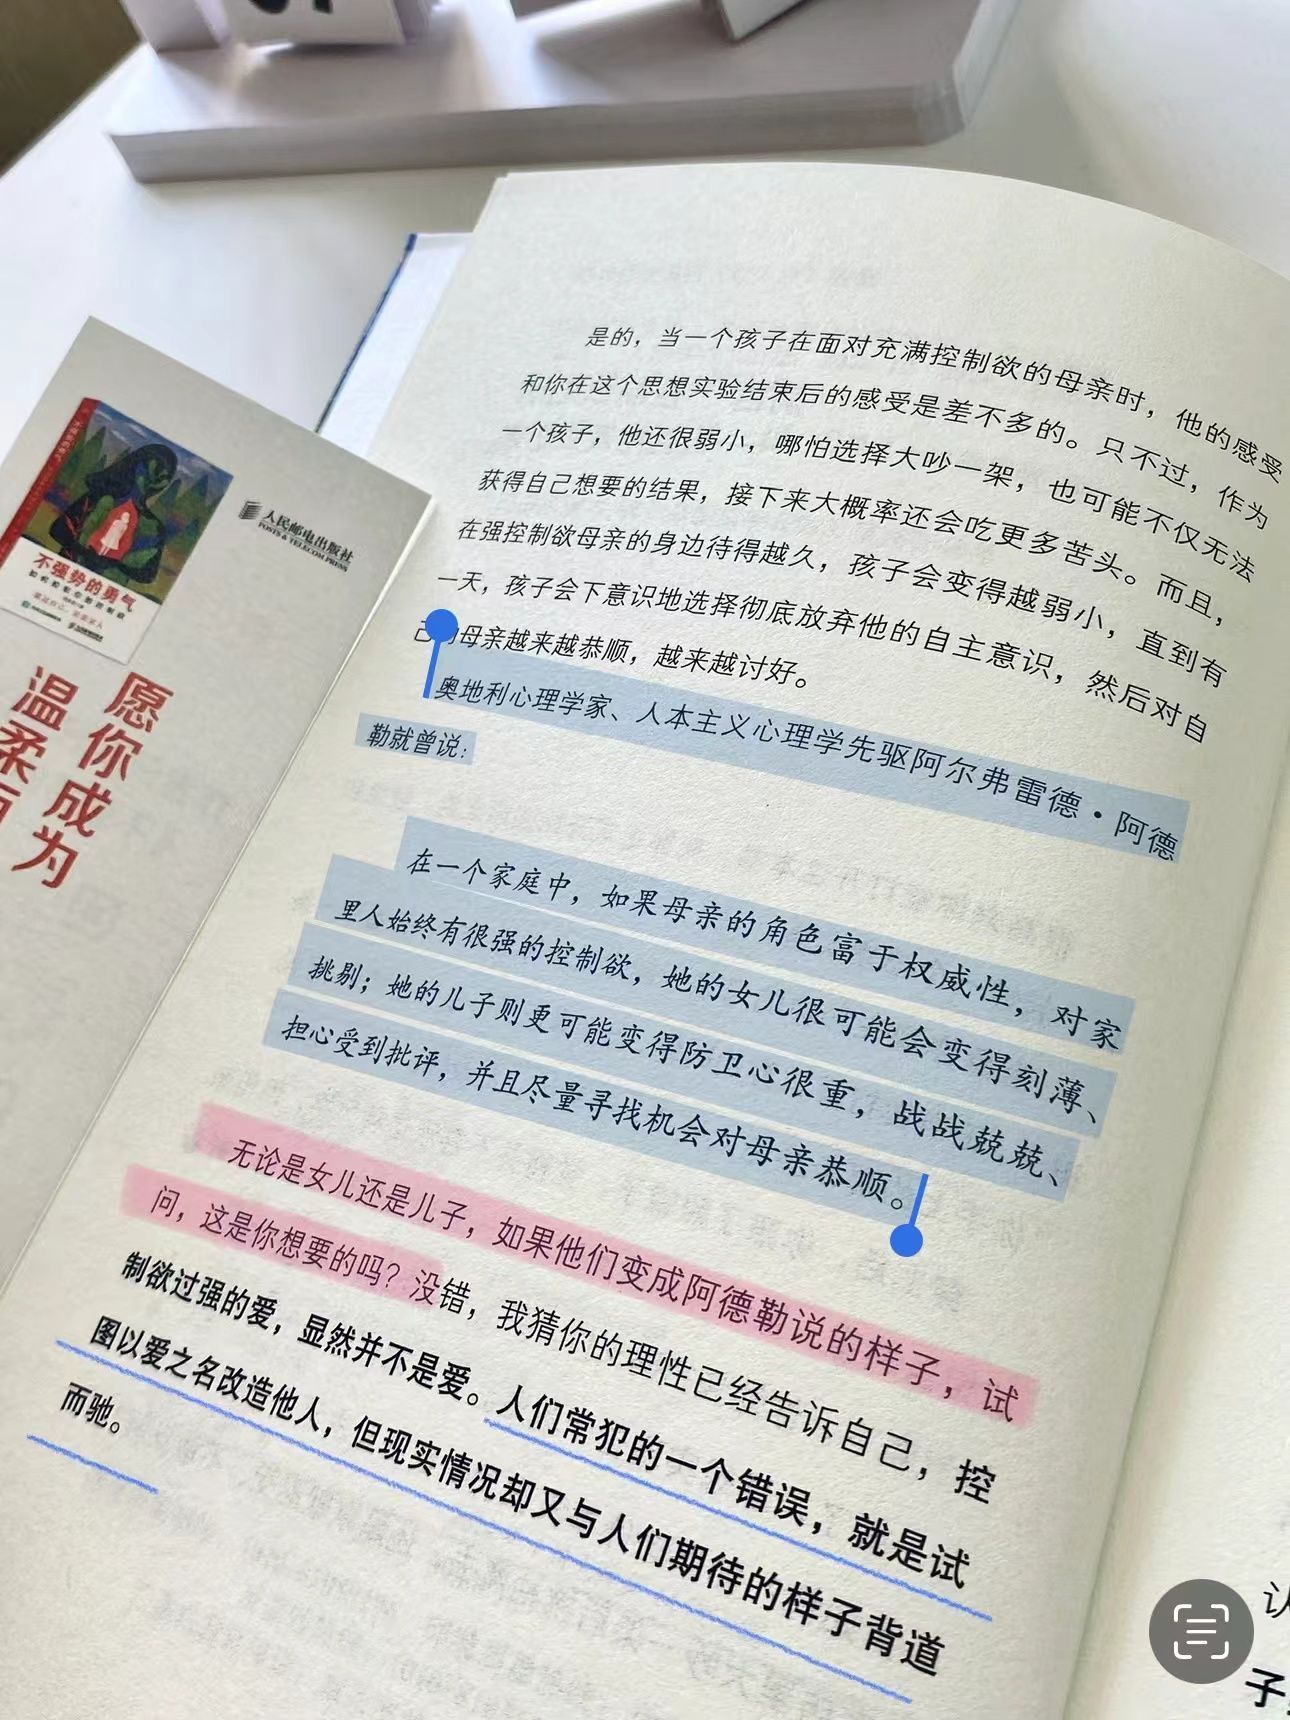 是的，当一个孩子在面对充满控制欲的母亲时，他的感受
和你在这个思想实验结束后的感受是差不多的。只不过，作为
一个孩子，他还很弱小，哪怕选择大吵一架，也可能不仅无法
获得自己想要的结果，接下来大概率还会吃更多苦头。而且，
在强控制欲母亲的身边待得越久，孩子会变得越弱小，直到有
一天，孩子会下意识地选择彻底放弃他的自主意识，然后对自
己的母亲越来越恭顺，越来越讨好。
奥地利心理学家、人本主义心理学先驱阿尔弗雷德·阿德
勒就曾说：
在一个家庭中，如果母亲的角色富于权威性，对家
里人始终有很强的控制欲，她的女儿很可能会变得刻薄、
挑剔；她的儿子则更可能变得防卫心很重，战战兢兢、
担心受到批评，并且尽量寻找机会对母亲恭顺。
无论是女儿还是儿子，如果他们变成阿德勒说的样子，试
问，这是你想要的吗？没错，我猜你的理性已经告诉自己，控
制欲过强的爱，显然并不是爱。人们常犯的一个错误，就是试
图以爱之名改造他人，但现实情况却又与人们期待的样子背道
而驰。
人民邮电出版社
POSTS & TELECOM PRESS
不强势的勇气
愿你成为
温柔而
认
子